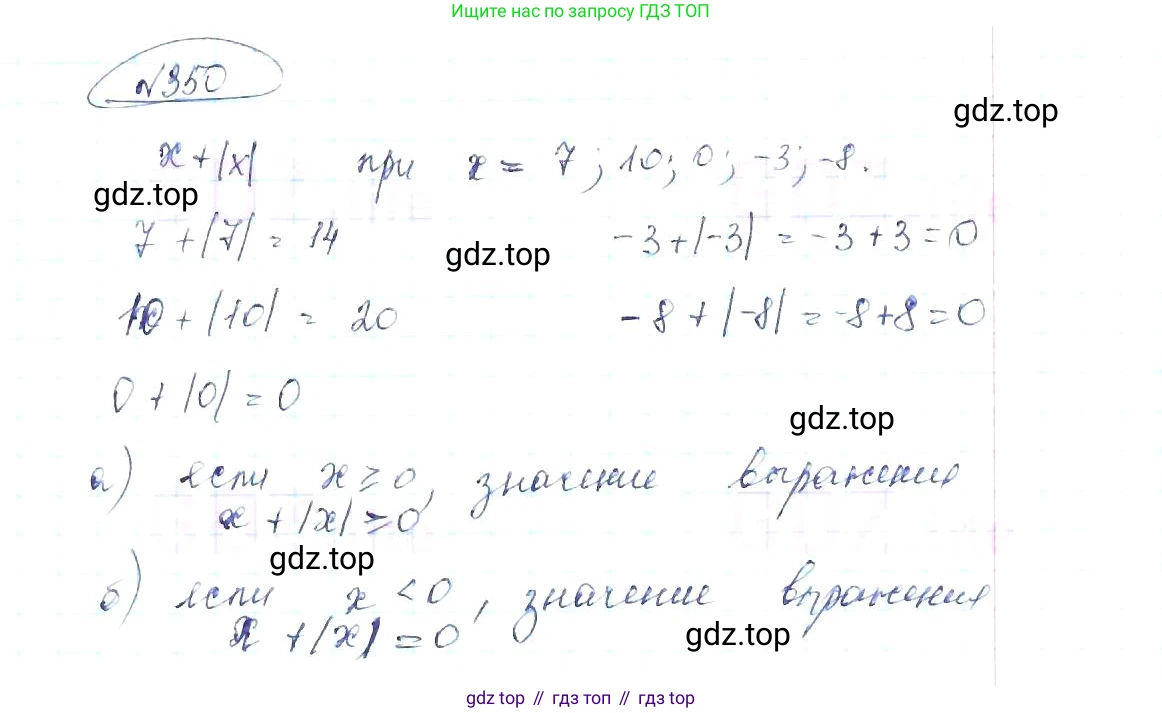 Ищите нас по запросу ГДЗ ТОП
№350
gdz.top
x + |x| при x = 7; 10; 0; -3; -8.
gdz.top
7 + |7| = 14
-3 + |-3| = -3 + 3 = 0
gdz.top
10 + |10| = 20
-8 + |-8| = -8 + 8 = 0
0 + |0| = 0
gdz.top
а) если x ≥ 0, значение выражения
x + |x| ≥ 0
gdz.top
б) если x < 0, значение выражения
x + |x| = 0
gdz.top
gdz top // гдз топ // гдз top